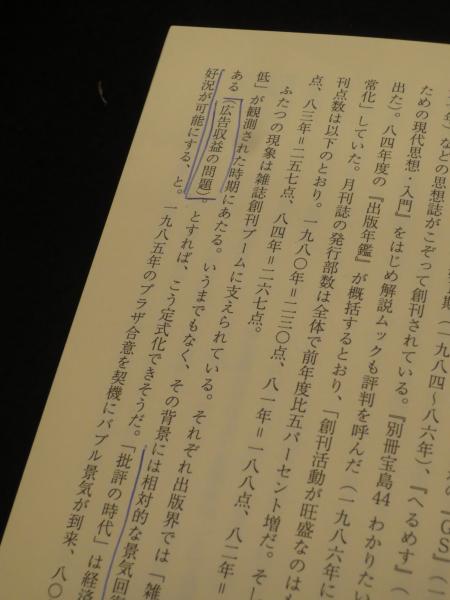 『GS』（一
年）などの思想誌がこぞって創刊されている。『別冊宝島44 わかりたい
期（一九八四〜八六年）、『へるめす』（
ための現代思想・入門』をはじめ解説ムックも評判を呼んだ（一九八六年に
出た）。八四年度の『出版年鑑』が概括するとおり、「創刊活動が旺盛なのはも
常化」していた。月刊誌の発行部数は全体で前年度比五パーセント増だ。そし
刊点数は以下のとおり。一九八〇年＝二三〇点、八一年＝一八八点、八二年＝
点、八三年＝二五七点、八四年＝二六七点。
ふたつの現象は雑誌創刊ブームに支えられている。それぞれ出版界では「雑
低」が観測された時期にあたる。いうまでもなく、その背景には相対的な景気回復
ある（広告収益の問題）。とすれば、こう定式化できそうだ。「批評の時代」は経済
好況が可能にする、と。一九八五年のプラザ合意を契機にバブル景気が到来、八〇